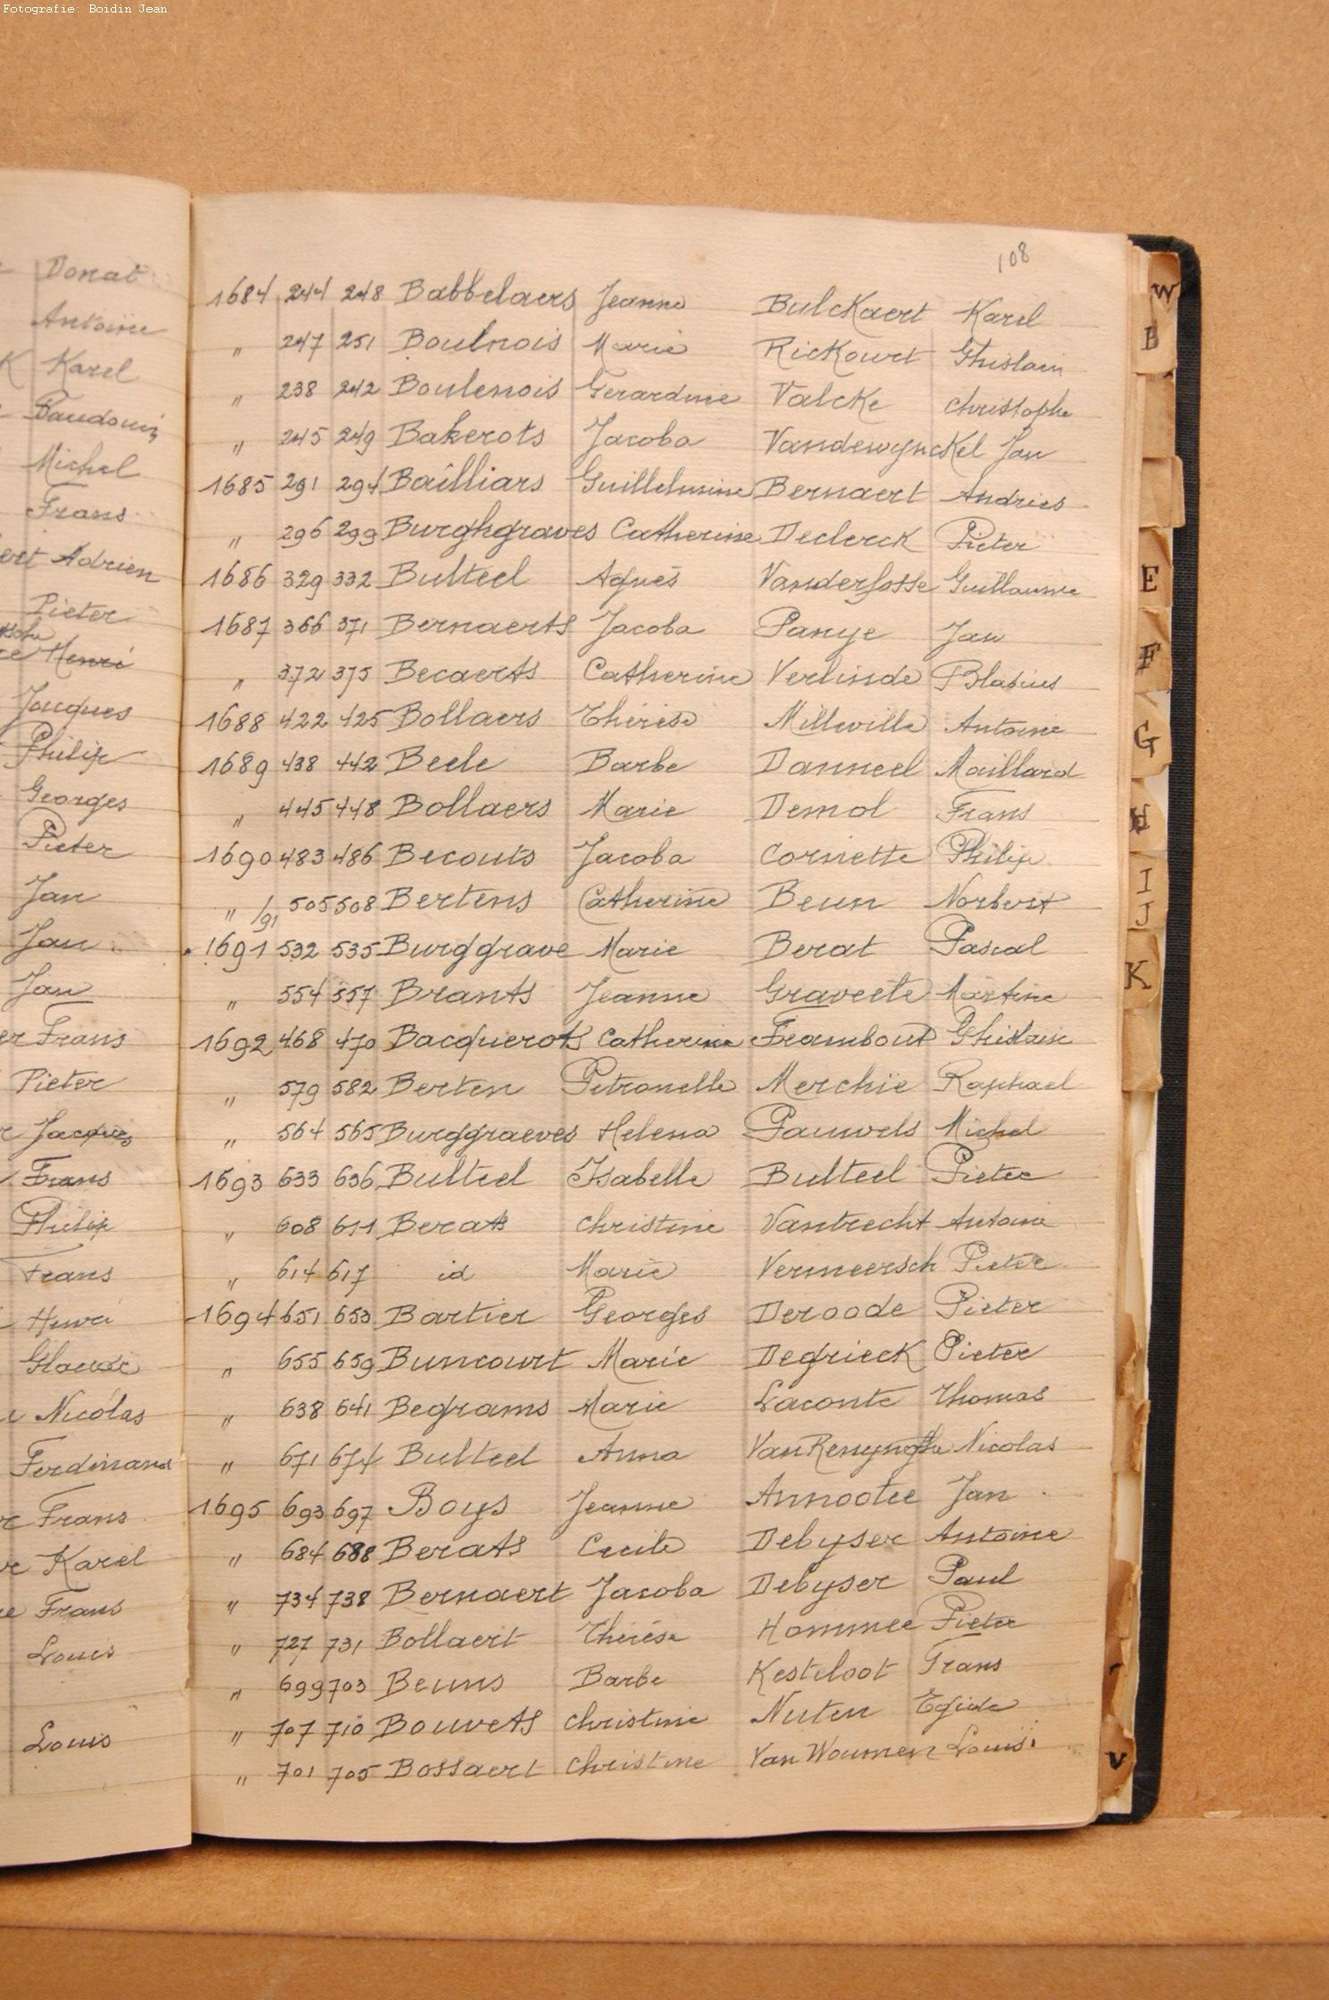 Fotografie: Boidin Jean
108
Donat
Antoine
K Karel
Baudouin
Michel
Frans
ert Adrien
Pieter
ce Henri
Jacques
Philip
Georges
Pieter
Jan
Jan
Jan
er Frans
Pieter
Jacques
Frans
Philip
Frans
Henri
Nicolas
Ferdinand
Frans
Karel
Frans
Louis
Louis
1684 244 248 Babbelaers Jeanne Bulckaert Karel
" 247 251 Boulnois Marie Rickourt Ghislain
" 238 242 Boulenois Gerardine Valcke christophe
" 245 249 Bakerots Jacoba Vandewynckel Jan
1685 291 294 Bailliars Guillelmine Bernaert Andries
" 296 299 Burghgraves Catherine Declerck Pieter
1686 329 332 Bulteel Agnès Vanderfosse Guillaume
1687 366 371 Bernaerts Jacoba Panye Jan
" 372 375 Becaerts Catherine Verlinde Blasius
1688 422 425 Bollaers Thérèse Milleville Antoine
1689 438 442 Beele Barbe Danneel Maillard
" 445 448 Bollaers Marie Demol Frans
1690 483 486 Becouts Jacoba Cornette Philip
" /91 505 508 Bertens Catherine Beun Norbert
1691 532 535 Burggrave Marie Berat Pascal
" 554 557 Brants Jeanne Graveete Martine
1692 468 470 Bacquerots Catherine Frambout Ghislain
" 579 582 Berten Petronelle Merchie Raphael
" 564 565 Burggraeves Helena Pauwels Michel
1693 633 636 Bulteel Isabelle Bulteel Pieter
" 608 611 Berats christine Vantrecht Antoine
" 614 617 id Marie Vermeersch Pieter
1694 651 653 Bartier Georges Deroode Pieter
" 655 659 Buncourt Marie Degrieck Pieter
" 638 641 Begrams Marie Laconte Thomas
" 671 674 Bulteel Anna Van Renynghe Nicolas
1695 693 697 Boys Jeanne Annootee Jan
" 684 688 Berats Cecile Debyser Antoine
" 734 738 Bernaert Jacoba Debyser Paul
" 727 731 Bollaert Thérèse Hommee Pieter
" 699 703 Beuns Barbe Kesteloot Frans
" 707 710 Bouvets christine Nuten Egide
" 701 705 Bossaert christine Van Woumen Louis
W
B
E
F
G
H
I
J
K
V